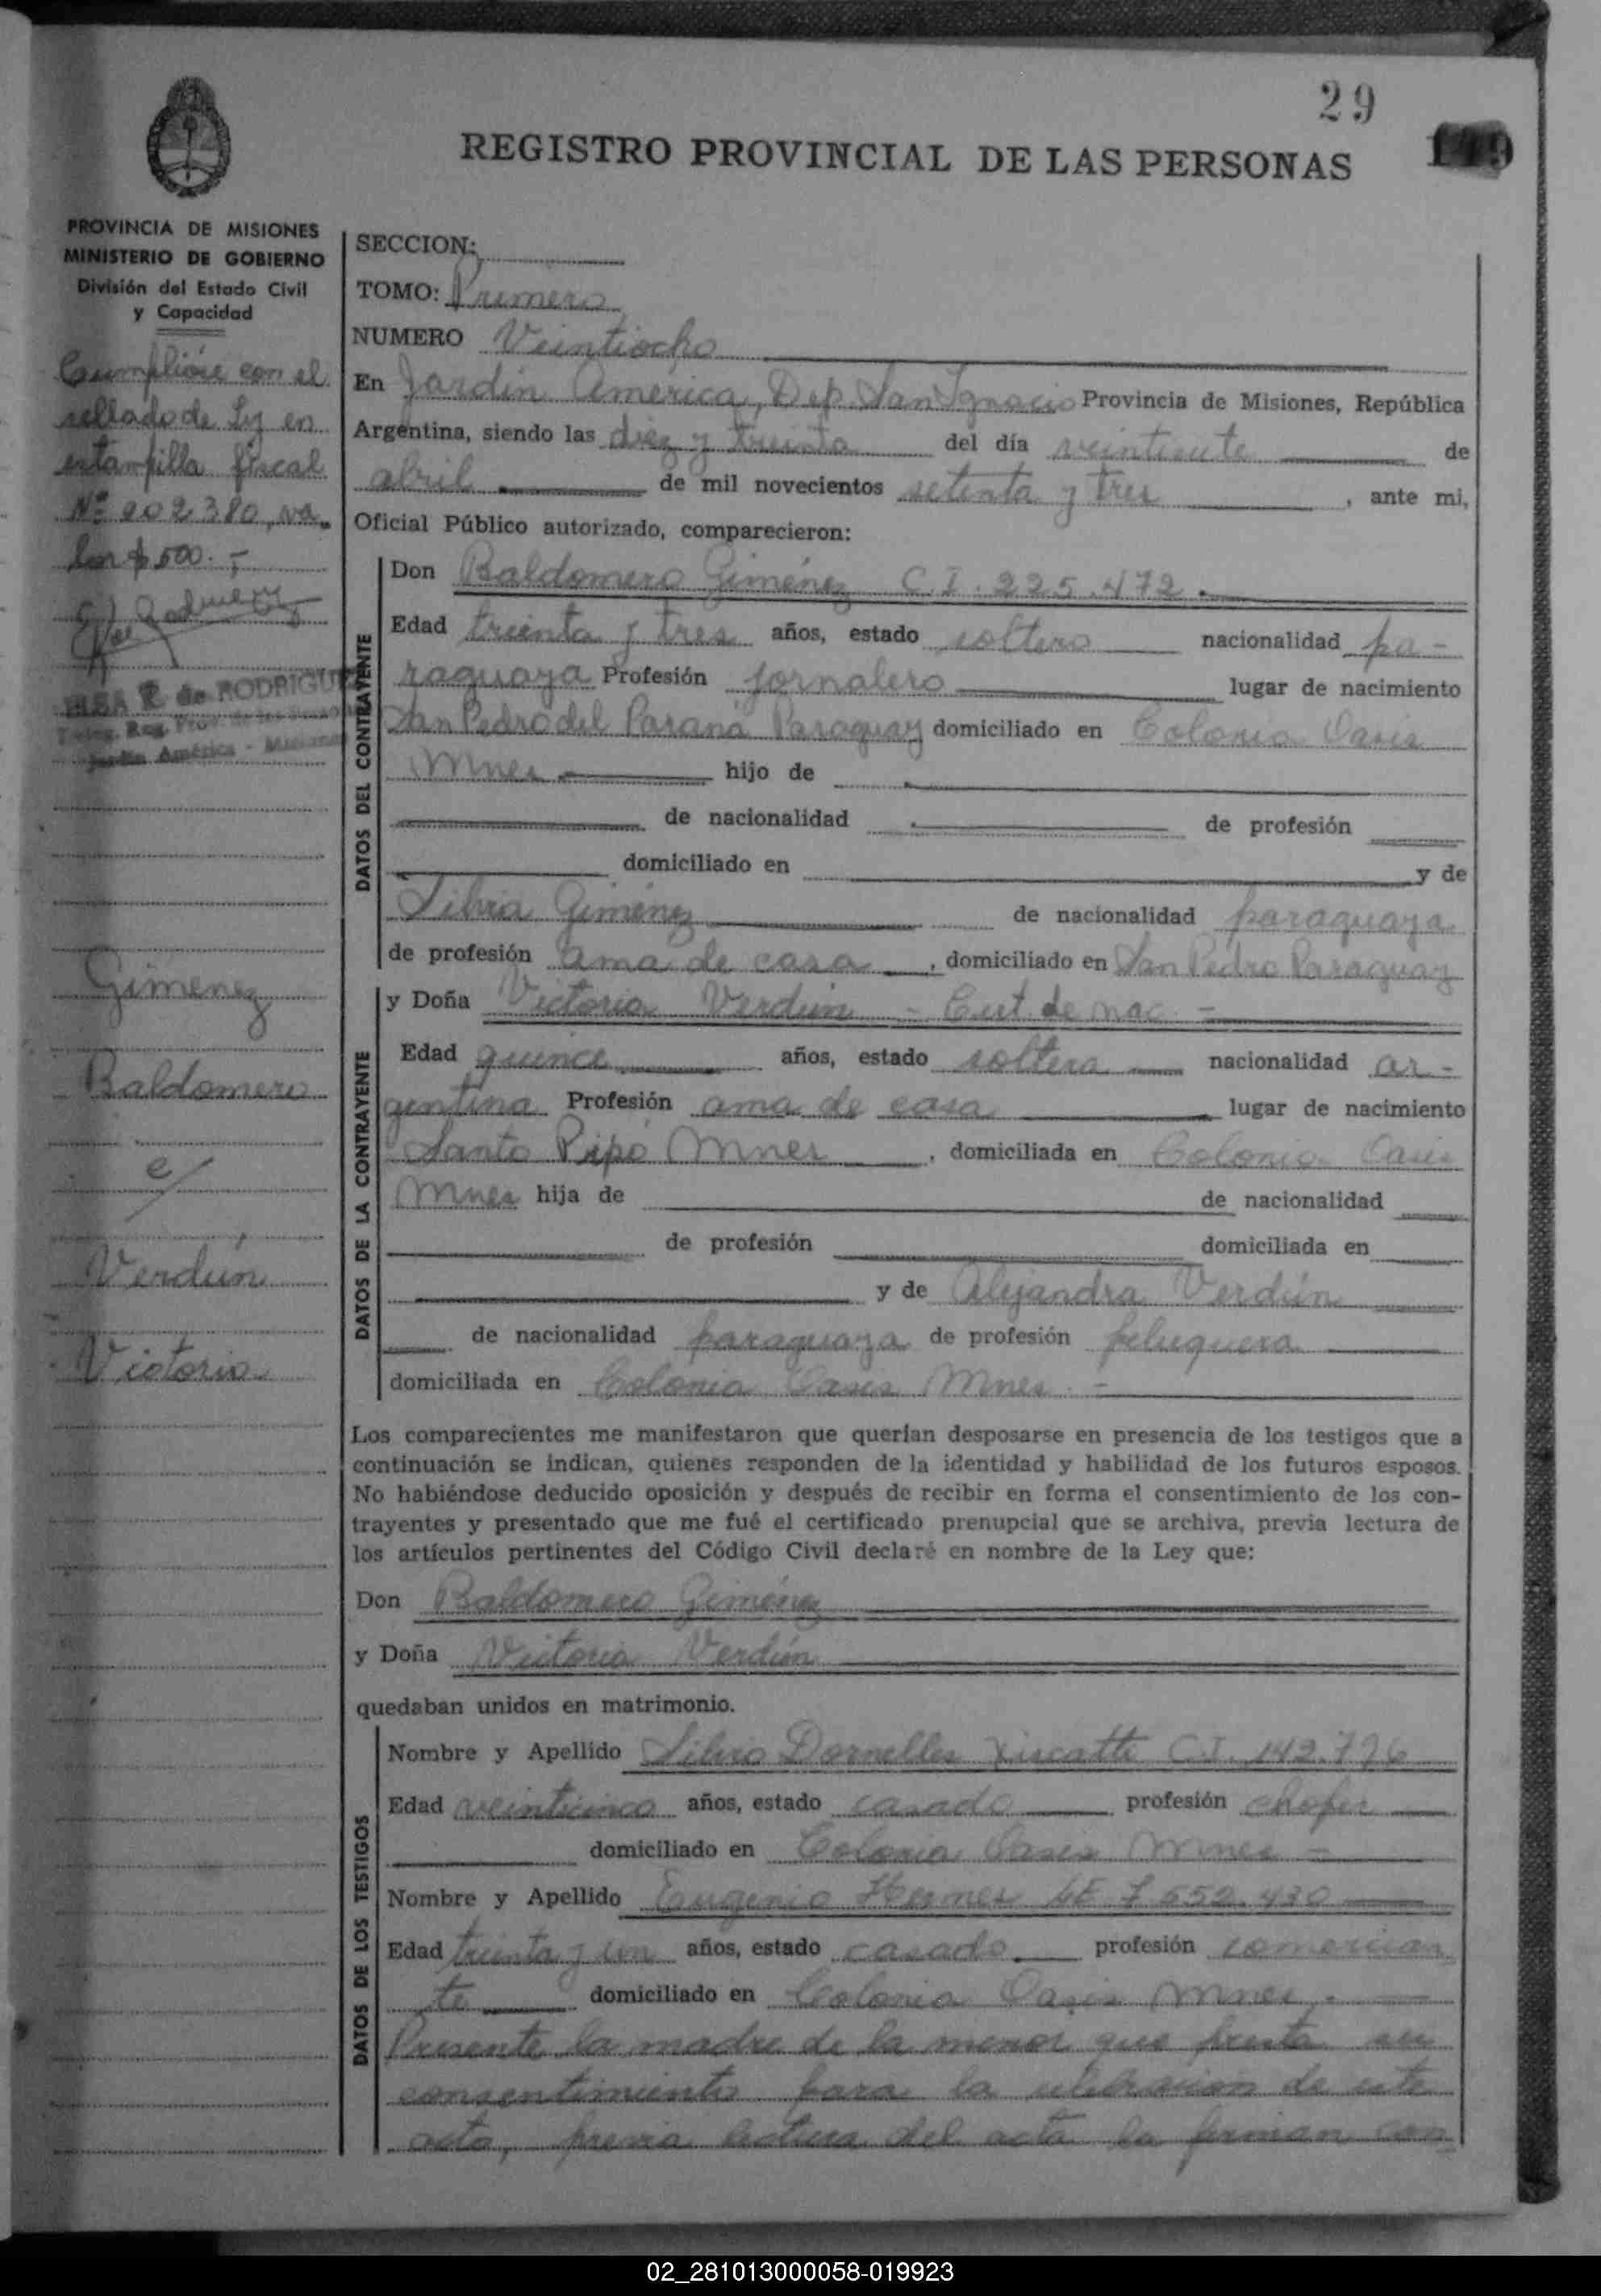 29
REGISTRO PROVINCIAL DE LAS PERSONAS
PROVINCIA DE MISIONES
MINISTERIO DE GOBIERNO
División del Estado Civil
y Capacidad
Cumplióse con el
sellado de Ley en
estampilla fiscal
Nº 202380, va-
lor $ 500.-
ELSA R. de RODRIGUEZ
Deleg. Reg. Prov. de las Personas
Jardín América - Misiones
Gimenez
Baldomero
c/
Verdún
Victoria
SECCION:
TOMO: Primero
NUMERO Veintiocho
En Jardín América, Dep. San Ignacio Provincia de Misiones, República
Argentina, siendo las diez y treinta del día veintisiete de
abril de mil novecientos setenta y tres, ante mi,
Oficial Público autorizado, comparecieron:
DATOS DEL CONTRAYENTE
Don Baldomero Giménez C.I. 225.472.
Edad treinta y tres años, estado soltero nacionalidad pa-
raguaya Profesión jornalero lugar de nacimiento
San Pedro del Paraná Paraguay domiciliado en Colonia Oasis
Mnes hijo de
de nacionalidad de profesión
domiciliado en y de
Silvia Giménez de nacionalidad paraguaya
de profesión ama de casa, domiciliado en San Pedro Paraguay
DATOS DE LA CONTRAYENTE
y Doña Victoria Verdún - Cert. de nac. -
Edad quince años, estado soltera nacionalidad ar-
gentina Profesión ama de casa lugar de nacimiento
Santo Pipó Mnes, domiciliada en Colonia Oasis
Mnes hija de de nacionalidad
de profesión domiciliada en
y de Alejandra Verdún
de nacionalidad paraguaya de profesión peluquera
domiciliada en Colonia Oasis Mnes. -
Los comparecientes me manifestaron que querían desposarse en presencia de los testigos que a
continuación se indican, quienes responden de la identidad y habilidad de los futuros esposos.
No habiéndose deducido oposición y después de recibir en forma el consentimiento de los con-
trayentes y presentado que me fué el certificado prenupcial que se archiva, previa lectura de
los artículos pertinentes del Código Civil declaré en nombre de la Ley que:
Don Baldomero Giménez
y Doña Victoria Verdún
quedaban unidos en matrimonio.
DATOS DE LOS TESTIGOS
Nombre y Apellido Silvio Dornelles C.I. 142.796
Edad veinticinco años, estado casado profesión chofer
domiciliado en Colonia Oasis Mnes -
Nombre y Apellido Eugenio Hermes LE 7.552.430
Edad treinta y un años, estado casado profesión comercian
te domiciliado en Colonia Oasis Mnes.
Presente la madre de la menor que presta su
consentimiento para la celebración de este
acto, previa lectura del acta la firman con
02_281013000058-019923